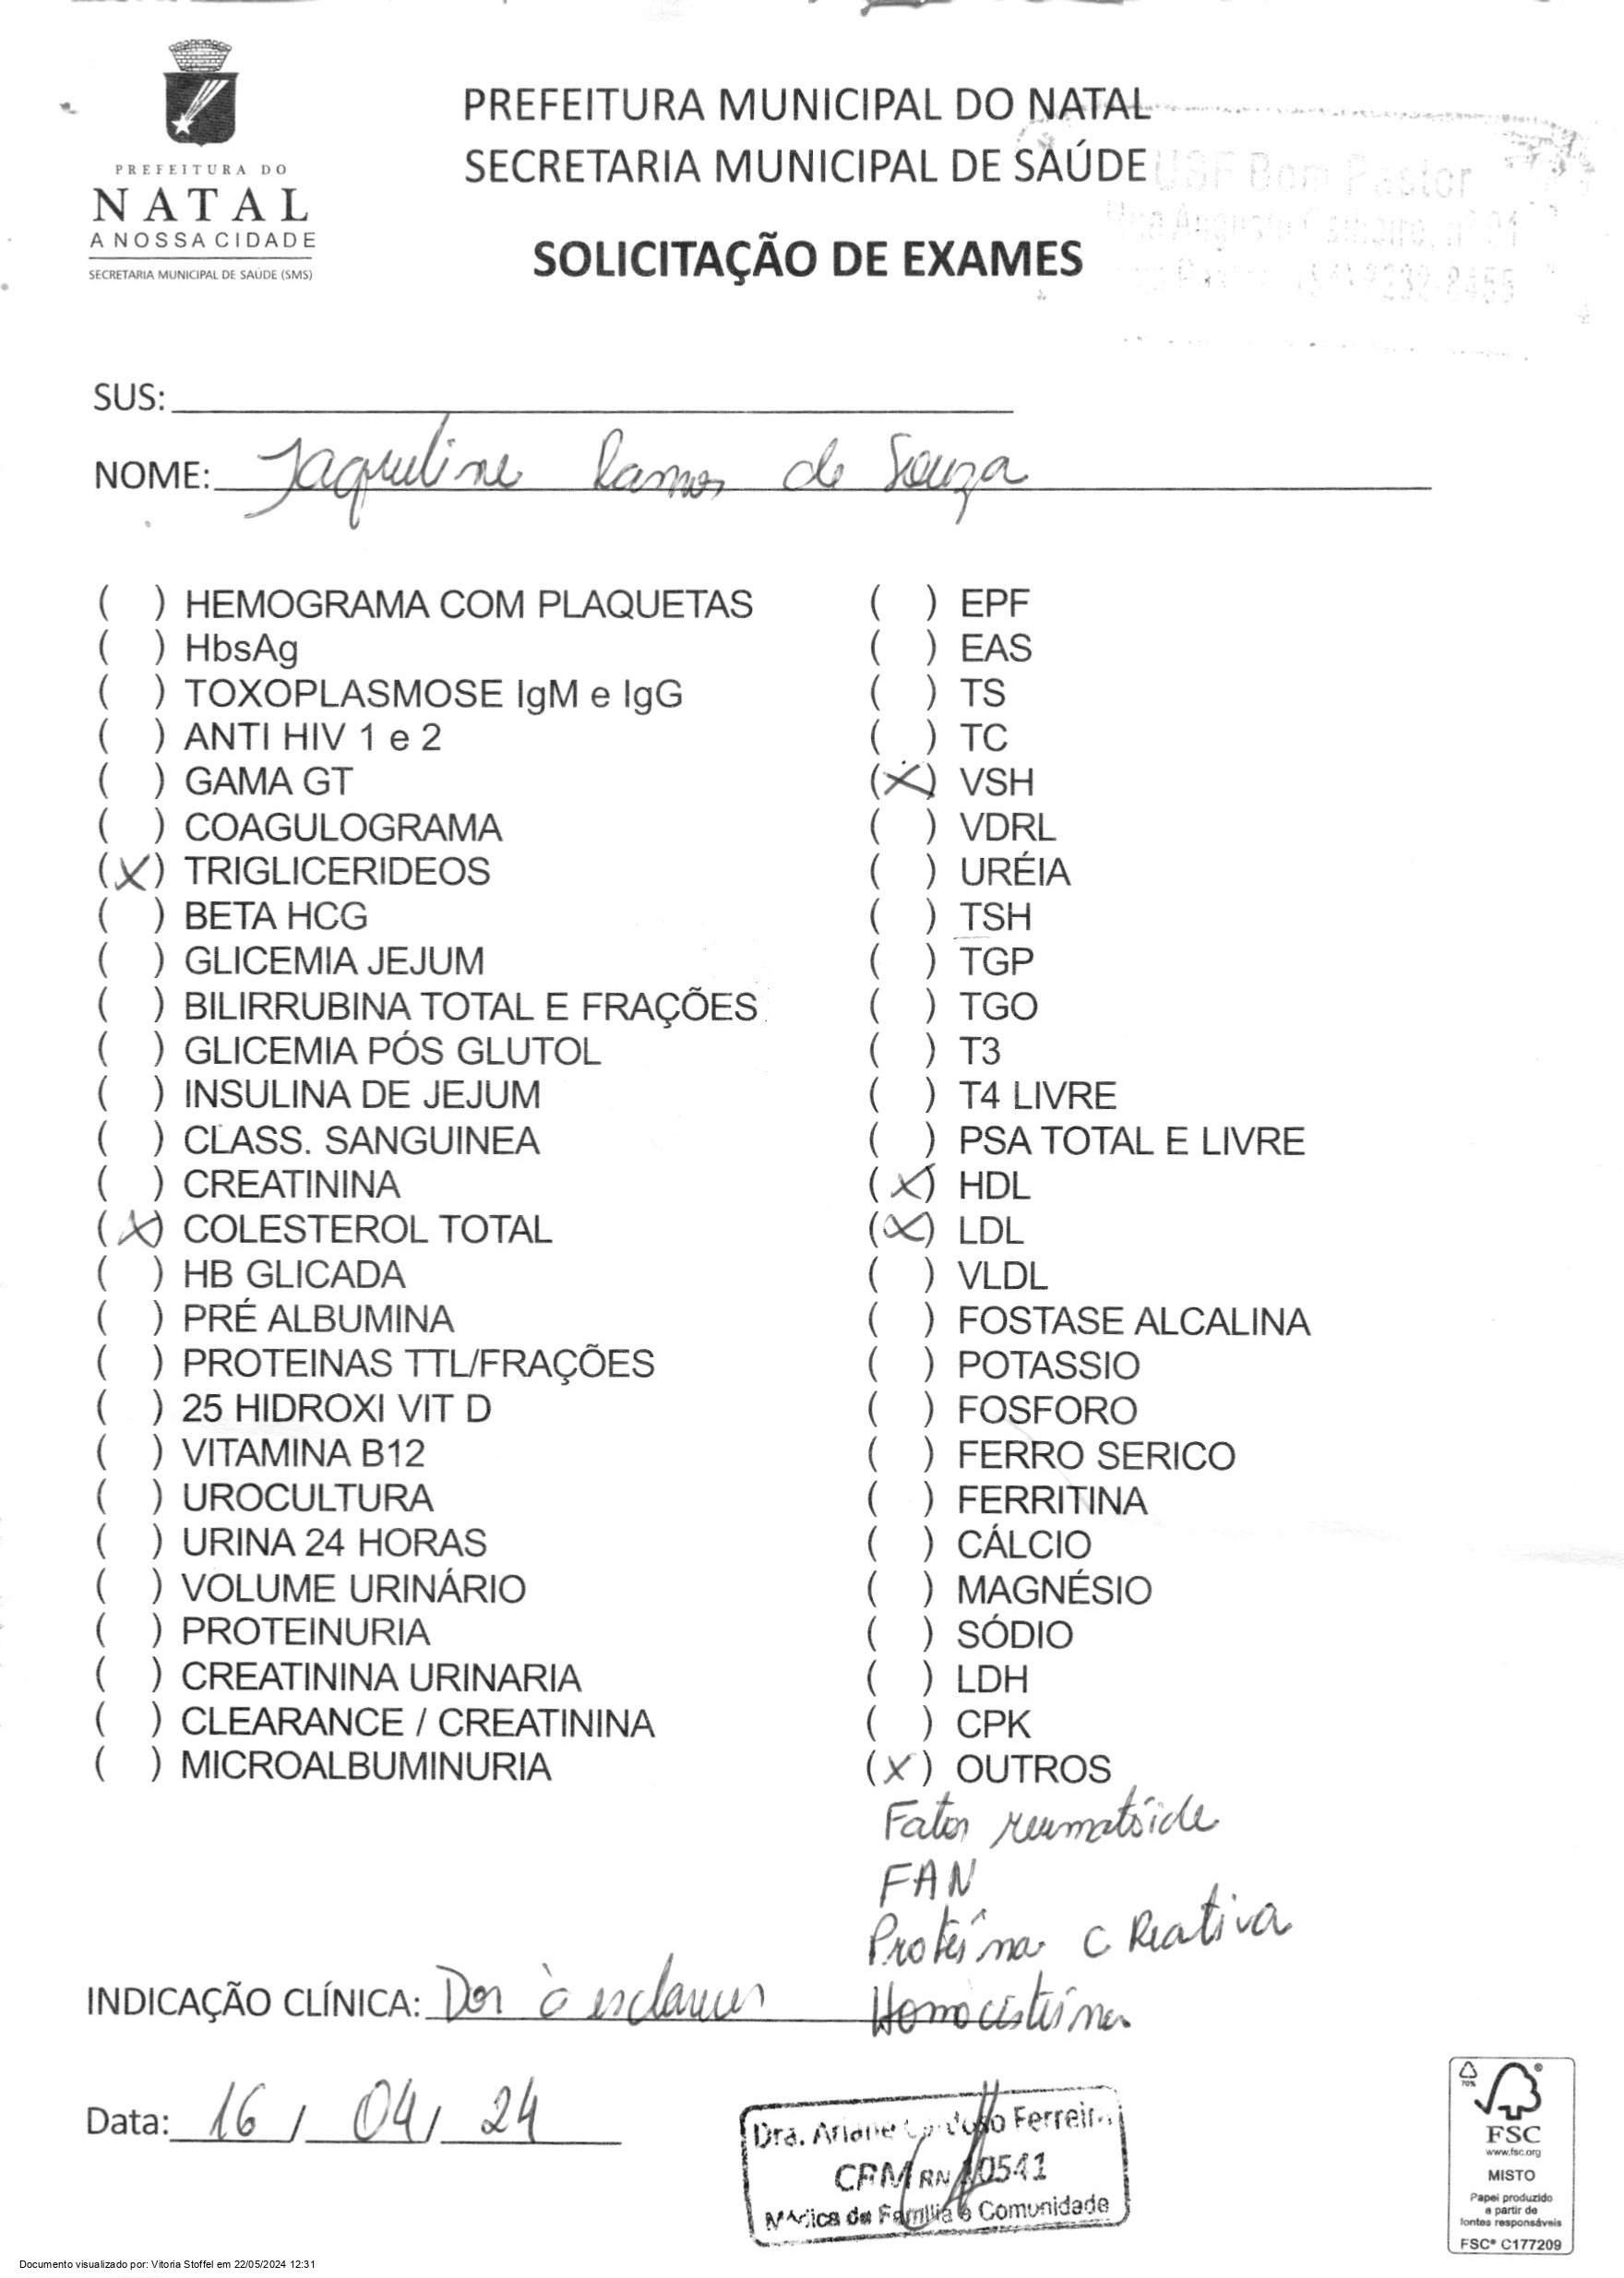 PREFEITURA DO
NATAL
A NOSSA CIDADE
SECRETARIA MUNICIPAL DE SAÚDE (SMS)
PREFEITURA MUNICIPAL DO NATAL
SECRETARIA MUNICIPAL DE SAÚDE
SOLICITAÇÃO DE EXAMES
USF Bom Pastor
SUS:
NOME: Jaqueline Ramos de Souza
( ) HEMOGRAMA COM PLAQUETAS
( ) HbsAg
( ) TOXOPLASMOSE IgM e IgG
( ) ANTI HIV 1 e 2
( ) GAMA GT
( ) COAGULOGRAMA
(X) TRIGLICERIDEOS
( ) BETA HCG
( ) GLICEMIA JEJUM
( ) BILIRRUBINA TOTAL E FRAÇÕES
( ) GLICEMIA PÓS GLUTOL
( ) INSULINA DE JEJUM
( ) CLASS. SANGUINEA
( ) CREATININA
(X) COLESTEROL TOTAL
( ) HB GLICADA
( ) PRÉ ALBUMINA
( ) PROTEINAS TTL/FRAÇÕES
( ) 25 HIDROXI VIT D
( ) VITAMINA B12
( ) UROCULTURA
( ) URINA 24 HORAS
( ) VOLUME URINÁRIO
( ) PROTEINURIA
( ) CREATININA URINARIA
( ) CLEARANCE / CREATININA
( ) MICROALBUMINURIA
( ) EPF
( ) EAS
( ) TS
( ) TC
(X) VSH
( ) VDRL
( ) URÉIA
( ) TSH
( ) TGP
( ) TGO
( ) T3
( ) T4 LIVRE
( ) PSA TOTAL E LIVRE
(X) HDL
(X) LDL
( ) VLDL
( ) FOSTASE ALCALINA
( ) POTASSIO
( ) FOSFORO
( ) FERRO SERICO
( ) FERRITINA
( ) CÁLCIO
( ) MAGNÉSIO
( ) SÓDIO
( ) LDH
( ) CPK
(X) OUTROS
Fator reumatóide
FAN
Proteína C Reativa
Homocisteína
INDICAÇÃO CLÍNICA: Dor à esclarecer
Data: 16 / 04 / 24
Dra. Ariane Cardoso Ferreira
CRM RN 10541
Médica de Família e Comunidade
70%
FSC
www.fsc.org
MISTO
Papel produzido
a partir de
fontes responsáveis
FSC® C177209
Documento visualizado por: Vitoria Stoffel em 22/05/2024 12:31